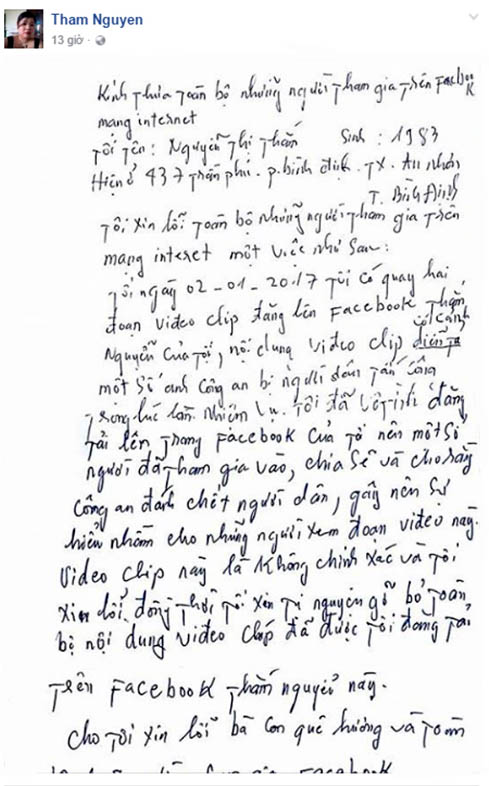 Tham Nguyen
13 giờ
Kính thưa toàn bộ những người tham gia trên Facebook
mạng internet
Tôi tên: Nguyễn Thị Thắm Sinh: 1983
Hiện ở 437 Trần Phú. P. Bình Định. TX. An Nhơn
T. Bình Định
Tôi xin lỗi toàn bộ những người tham gia trên
mạng interet một việc như sau:
Tối ngày 02-01-2017 Tôi có quay hai
đoạn video clip đăng lên Facebook Thắm
Nguyễn của tôi, nội dung video clip có cảnh
một số anh công an bị người dân tấn công
trong lúc làm nhiệm vụ. Tôi đã vô tình đăng
tải lên trang Facebook của tôi nên một số
người đã tham gia vào, chia sẽ và cho rằng
công an đánh chết người dân, gây nên sự
hiểu nhầm cho những người xem đoạn video này.
Video clip này là không chính xác và tôi
xin lỗi. đồng thời tôi xin tự nguyện gỡ bỏ toàn
bộ nội dung video clip đã được tôi đăng tải
trên Facebook Thắm nguyễn này.
Cho tôi xin lỗi bà con quê hương và toàn
Facebook